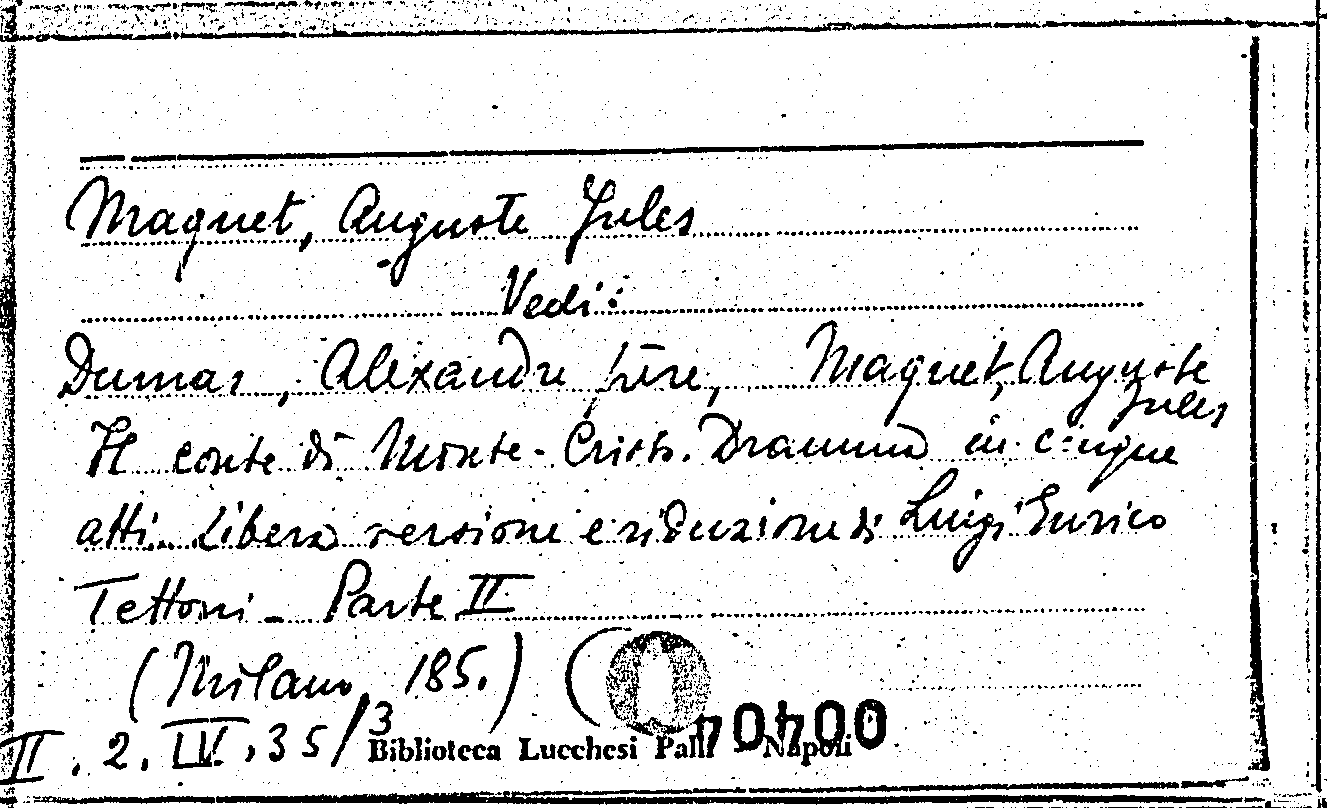 Maquet, Auguste Jules
Vedi:
Dumas, Alexandre père, Maquet, Auguste Jules
Il conte di Monte-Cristo. Dramma in cinque
atti. Libera versione e riduzione di Luigi Enrico
Tettoni - Parte II
(Milano, 185.) (
II. 2. LV. 35/3
Biblioteca Lucchesi Palli - Napoli